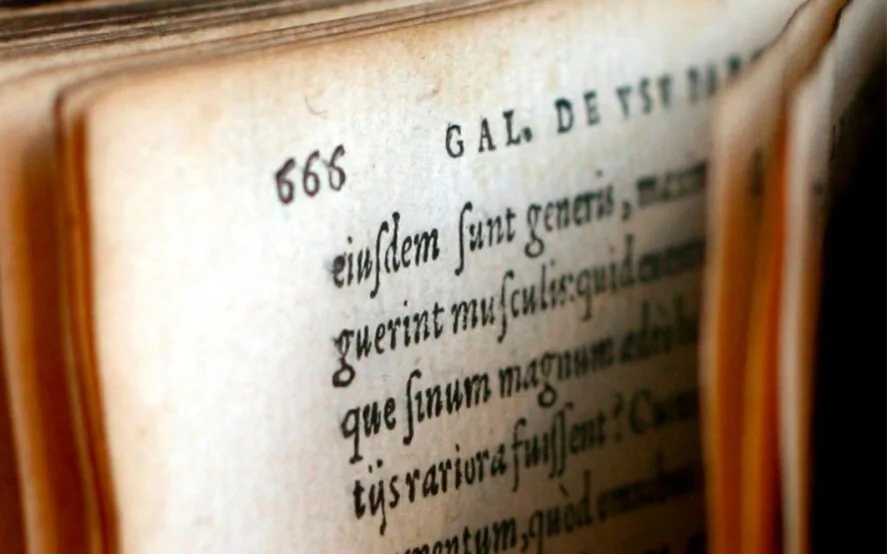 666 GAL. DE VSV PAR
eiuſdem ſunt generis, maxim
guerint muſculis: quid
que ſinum magnum adeò
tijs rariora fuiſſent? Cum
mentum, quòd omnibus